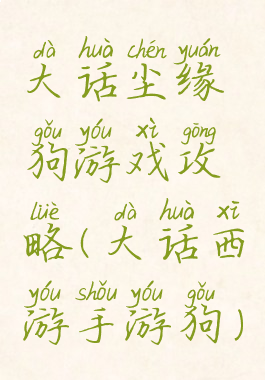 dà huà chén yuán
大话尘缘
gǒu yóu xì gōng
狗游戏攻
lüè dà huà xī
略(大话西
yóu shǒu yóu gǒu
游手游狗)